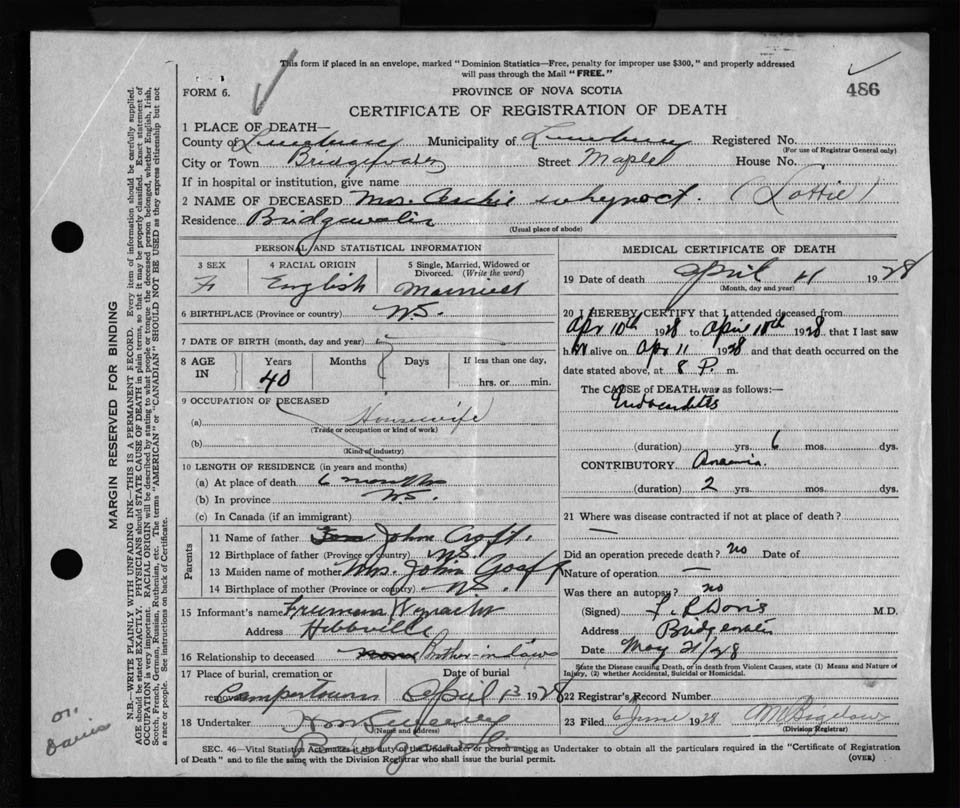 This form if placed in an envelope, marked "Dominion Statistics—Free, penalty for improper use $300," and properly addressed
will pass through the Mail "FREE."
FORM 6.
PROVINCE OF NOVA SCOTIA
486
CERTIFICATE OF REGISTRATION OF DEATH
1 PLACE OF DEATH—
County of Lunenburg Municipality of Lunenburg Registered No.
(For use of Registrar General only)
City or Town Bridgewater Street Maple House No.
If in hospital or institution, give name
2 NAME OF DECEASED Mrs. Archie Whynoct. (Lottie)
Residence Bridgewater
(Usual place of abode)
PERSONAL AND STATISTICAL INFORMATION
3 SEX 4 RACIAL ORIGIN 5 Single, Married, Widowed or Divorced. (Write the word)
F English Married
6 BIRTHPLACE (Province or country) N.S.
7 DATE OF BIRTH (month, day and year)
8 AGE IN Years Months Days If less than one day,
40 hrs. or min.
9 OCCUPATION OF DECEASED
(a) Housewife
(Trade or occupation or kind of work)
(b)
(Kind of industry)
10 LENGTH OF RESIDENCE (in years and months)
(a) At place of death 6 months
(b) In province N.S.
(c) In Canada (if an immigrant)
Parents
11 Name of father John Croft.
12 Birthplace of father (Province or country) N.S.
13 Maiden name of mother Mrs. John
14 Birthplace of mother (Province or country) N.S.
15 Informant's name Freeman
Address Hebbville
16 Relationship to deceased Brother in law
17 Place of burial, cremation or removal Date of burial
Campertown April 13 1928
18 Undertaker
(Name and address)
MEDICAL CERTIFICATE OF DEATH
19 Date of death April 11 1928
(Month, day and year)
20 I HEREBY CERTIFY that I attended deceased from
Apr 10th 1928 to April 1928, that I last saw
h alive on Apr 11 1928 and that death occurred on the
date stated above, at 8 P. m.
The CAUSE of DEATH was as follows:—
Endocarditis
(duration) yrs. 6 mos. dys.
CONTRIBUTORY Anaemia.
(duration) 2 yrs. mos. dys.
21 Where was disease contracted if not at place of death?
—
Did an operation precede death? no Date of
Nature of operation —
Was there an autopsy? no
(Signed) Davis M.D.
Address Bridgewater
Date May 21/28
State the Disease causing Death, or in death from Violent Causes, state (1) Means and Nature of
Injury, (2) whether Accidental, Suicidal or Homicidal.
22 Registrar's Record Number
23 Filed June 1928
(Division Registrar)
SEC. 46—Vital Statistics Act makes it the duty of the Undertaker or person acting as Undertaker to obtain all the particulars required in the "Certificate of Registration
of Death" and to file the same with the Division Registrar who shall issue the burial permit.
(OVER)
MARGIN RESERVED FOR BINDING
N.B.—WRITE PLAINLY WITH UNFADING INK—THIS IS A PERMANENT RECORD. Every item of information should be carefully supplied.
AGE should be stated EXACTLY. PHYSICIANS should STATE CAUSE OF DEATH in plain terms, so that it may be properly classified. Exact statement of
OCCUPATION is very important. RACIAL ORIGIN will be described by stating to what people or tongue the deceased person belonged, whether English, Irish,
Scotch, French, German, Russian, Ruthenian, etc. The terms "AMERICAN" or "CANADIAN" SHOULD NOT BE USED as they express citizenship but not
a race or people. See instructions on back of Certificate.
Davis